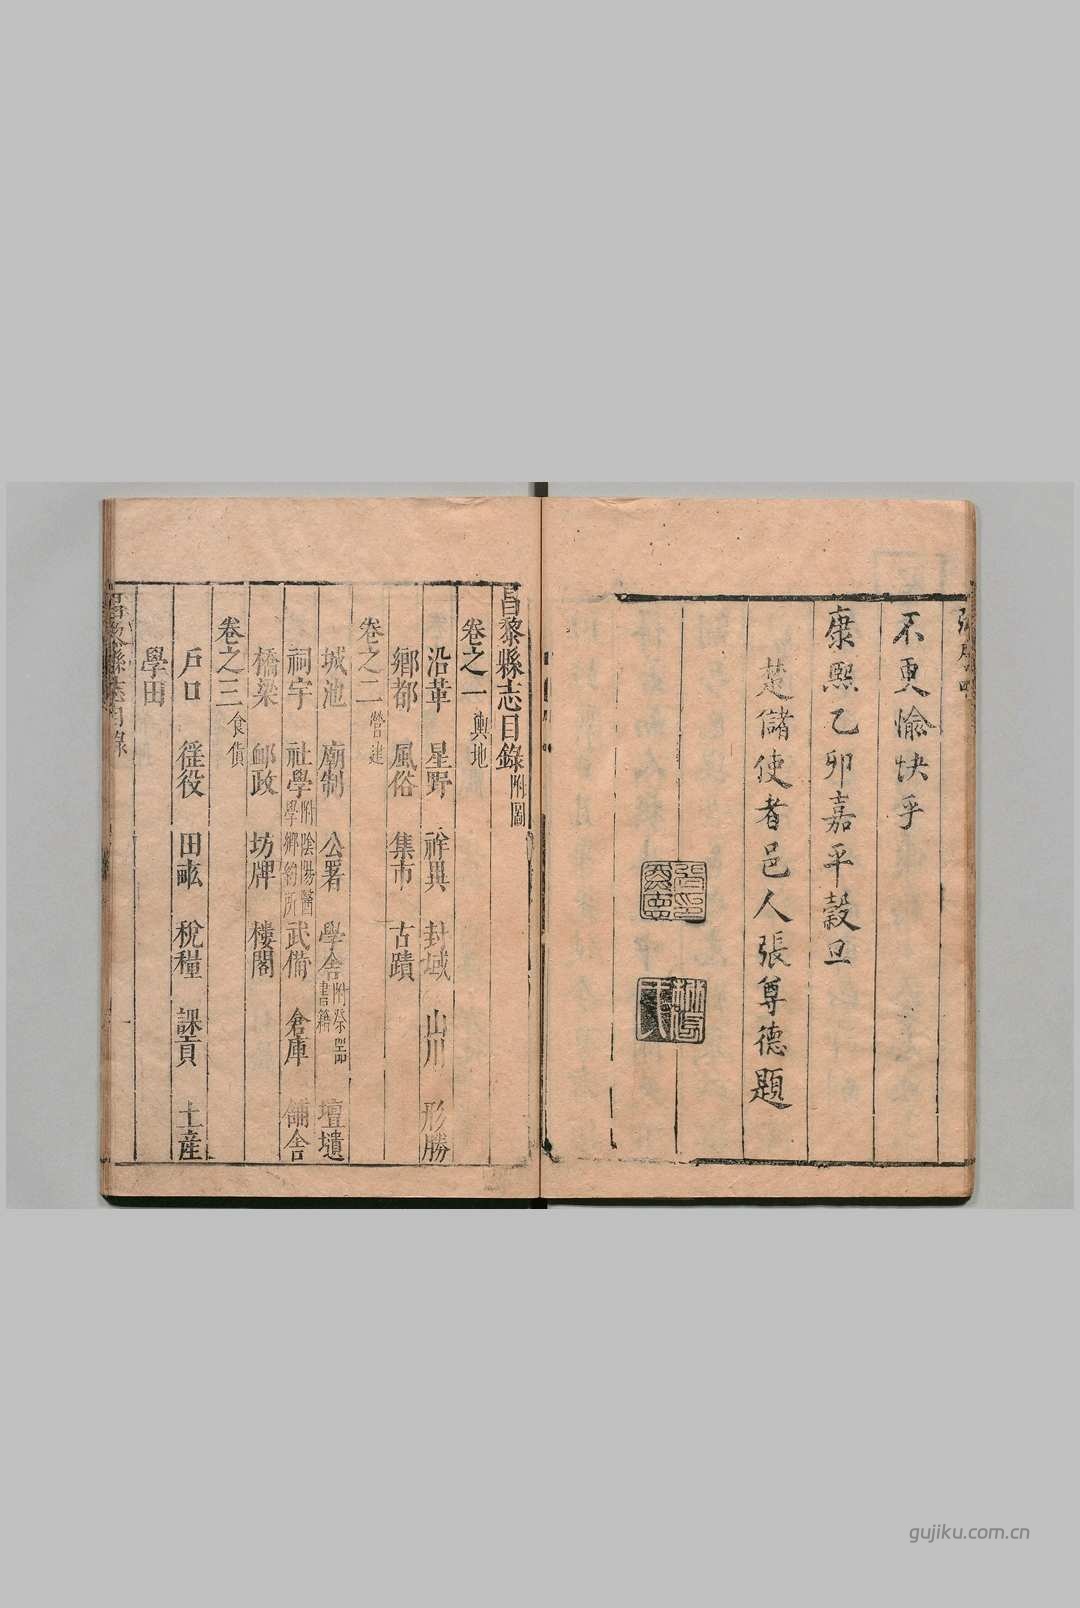 不更愉快乎
康熙乙卯嘉平穀旦
楚儲使者邑人張尊德題
昌黎縣志目錄附圖
卷之一輿地
沿革 星野 祥異 封域 山川 形勝
鄉都 風俗 集市 古蹟
卷之二營建
城池 廟制 公署 學舍附祭器書籍 壇壝
祠宇 社學附陰陽醫學鄉約所 武備 倉庫 舖舍
橋梁 郵政 坊牌 樓閣
卷之三食貨
戶口 徭役 田畝 稅糧 課貢 土産
學田
昌黎縣志目錄
gujiku.com.cn